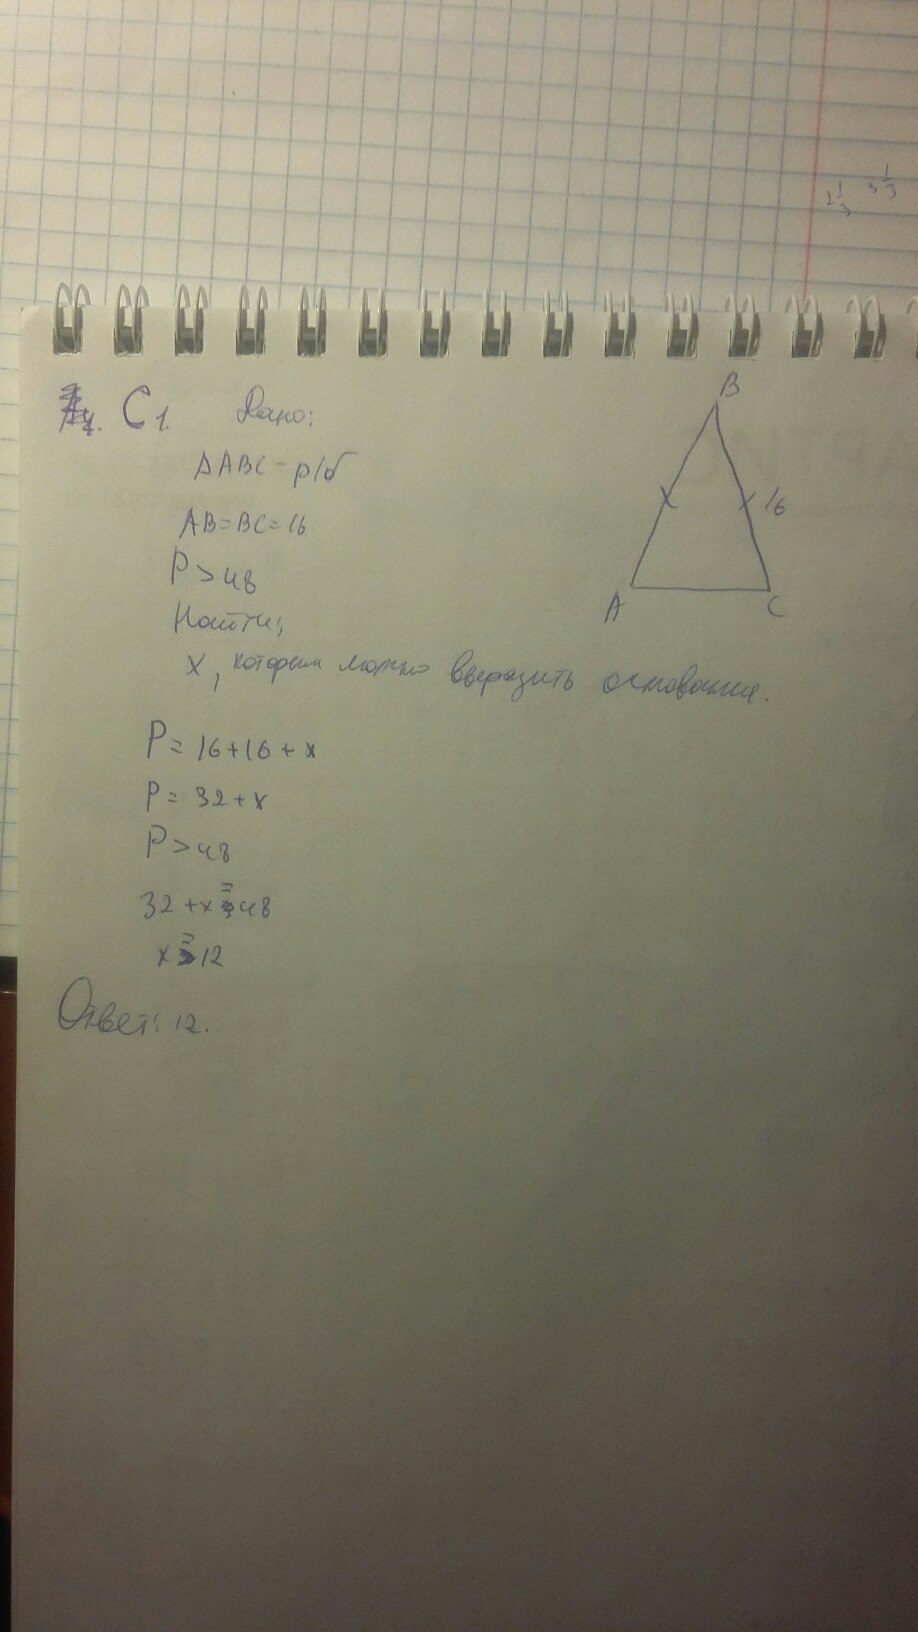 2 1/3 3 1/3
C 1. Дано:
ΔABC - р/б
AB=BC=16
P>48
Найти:
x, которым можно выразить основание.
B
16
A
C
P=16+16+x
P=32+x
P>48
32+x=48
x=12
Ответ: 12.